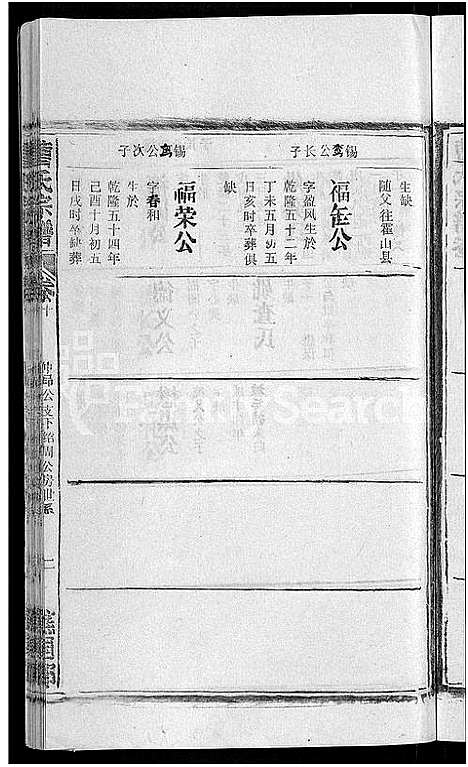 生缺
随父往霍山县
锡蛮公长子
福缶公
字盈风生於
乾隆五十二年
丁未五月初五
日亥时卒葬俱
缺
锡蛮公次子
福荣公
字春和
生於
乾隆五十四年
己酉十月初五
日戌时卒缺葬
曹氏宗譜
卷十
仲昂公支下绍周公房世系
二
譙國郡
FamilySearch